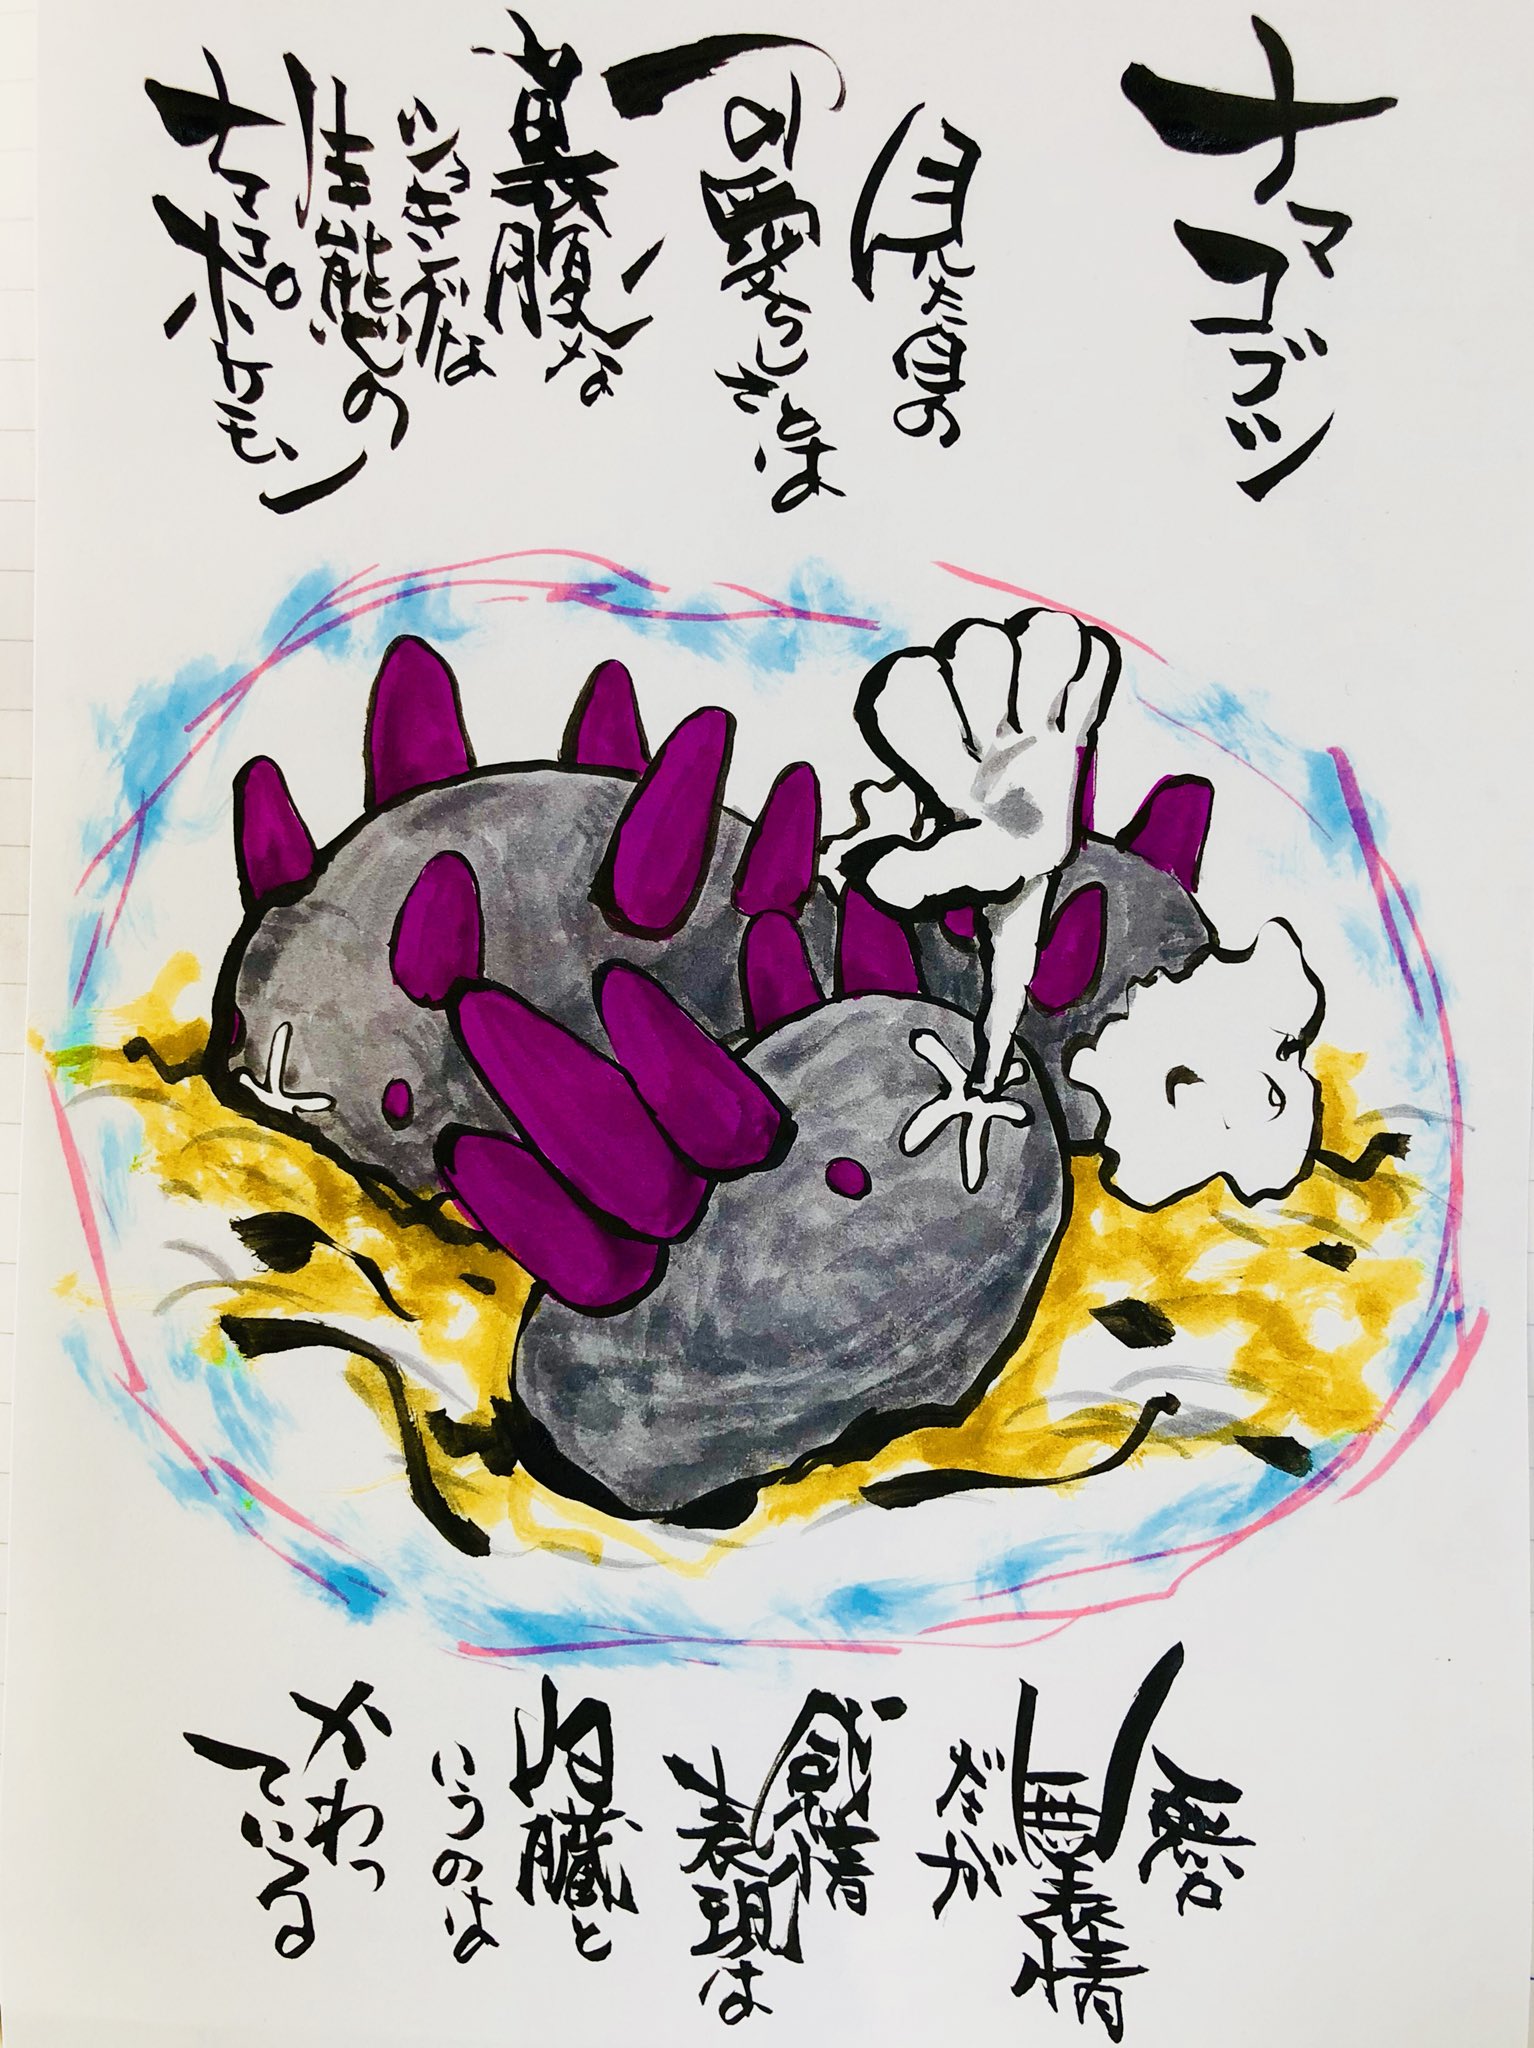 ナマコブシ
見た目の
可愛らしさとは
裏腹な
ショッキングな
生態の
ナマコポケモン
無表情
だが
感情
表現は
内臓と
いうのは
かわっ
ている